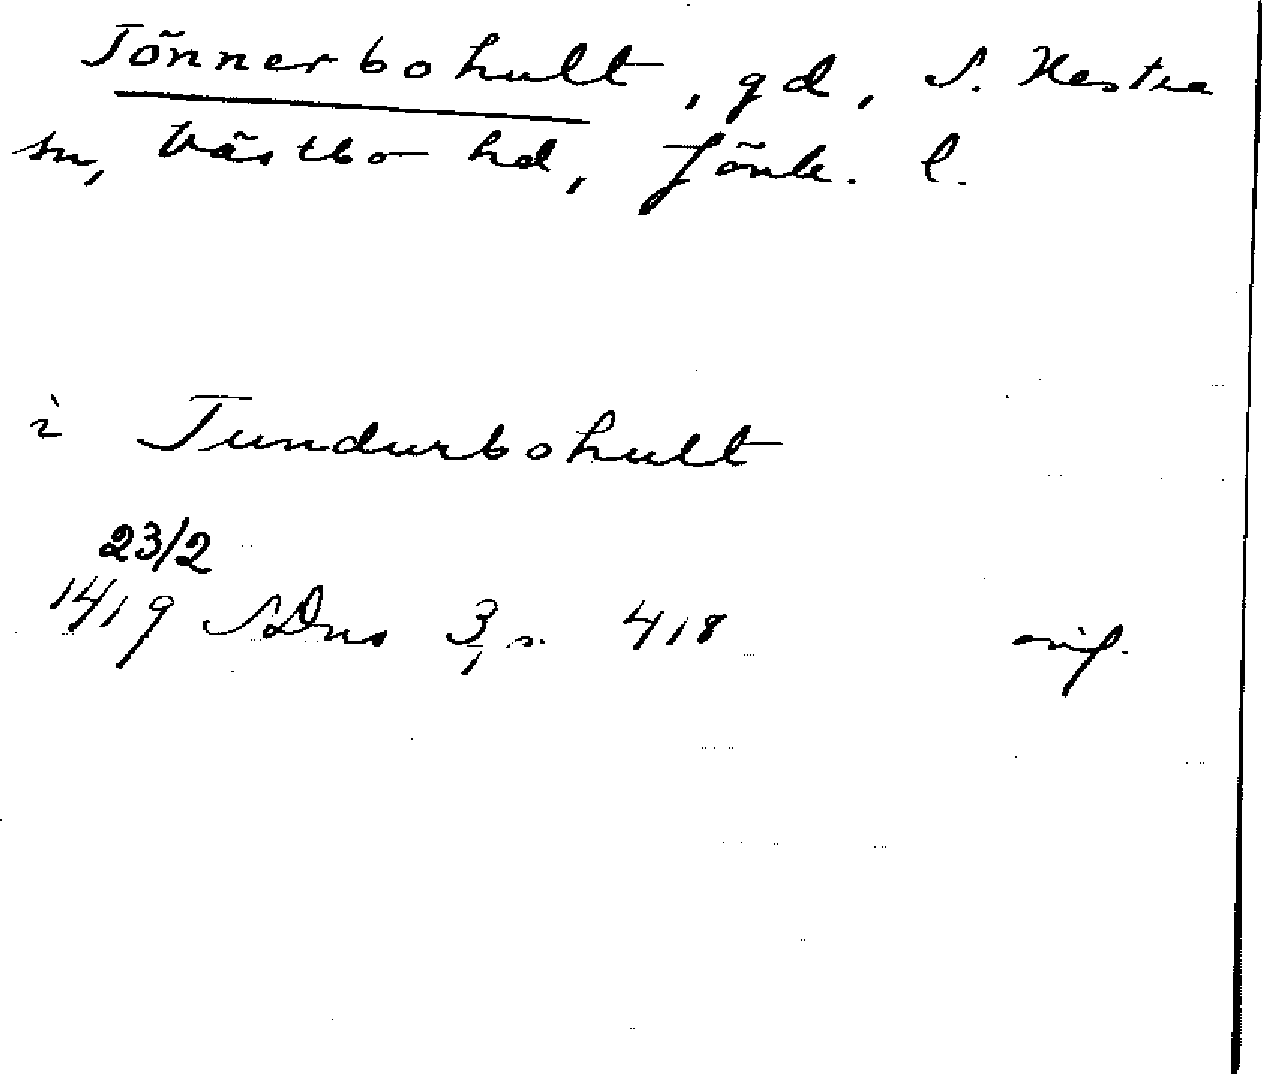 Tönnerbohult, gd, S. Hestra
sn, Västbo hd, Jönk. l.
i Tundurbohult
23/2
1419 SDns 3, s. 418 orif.